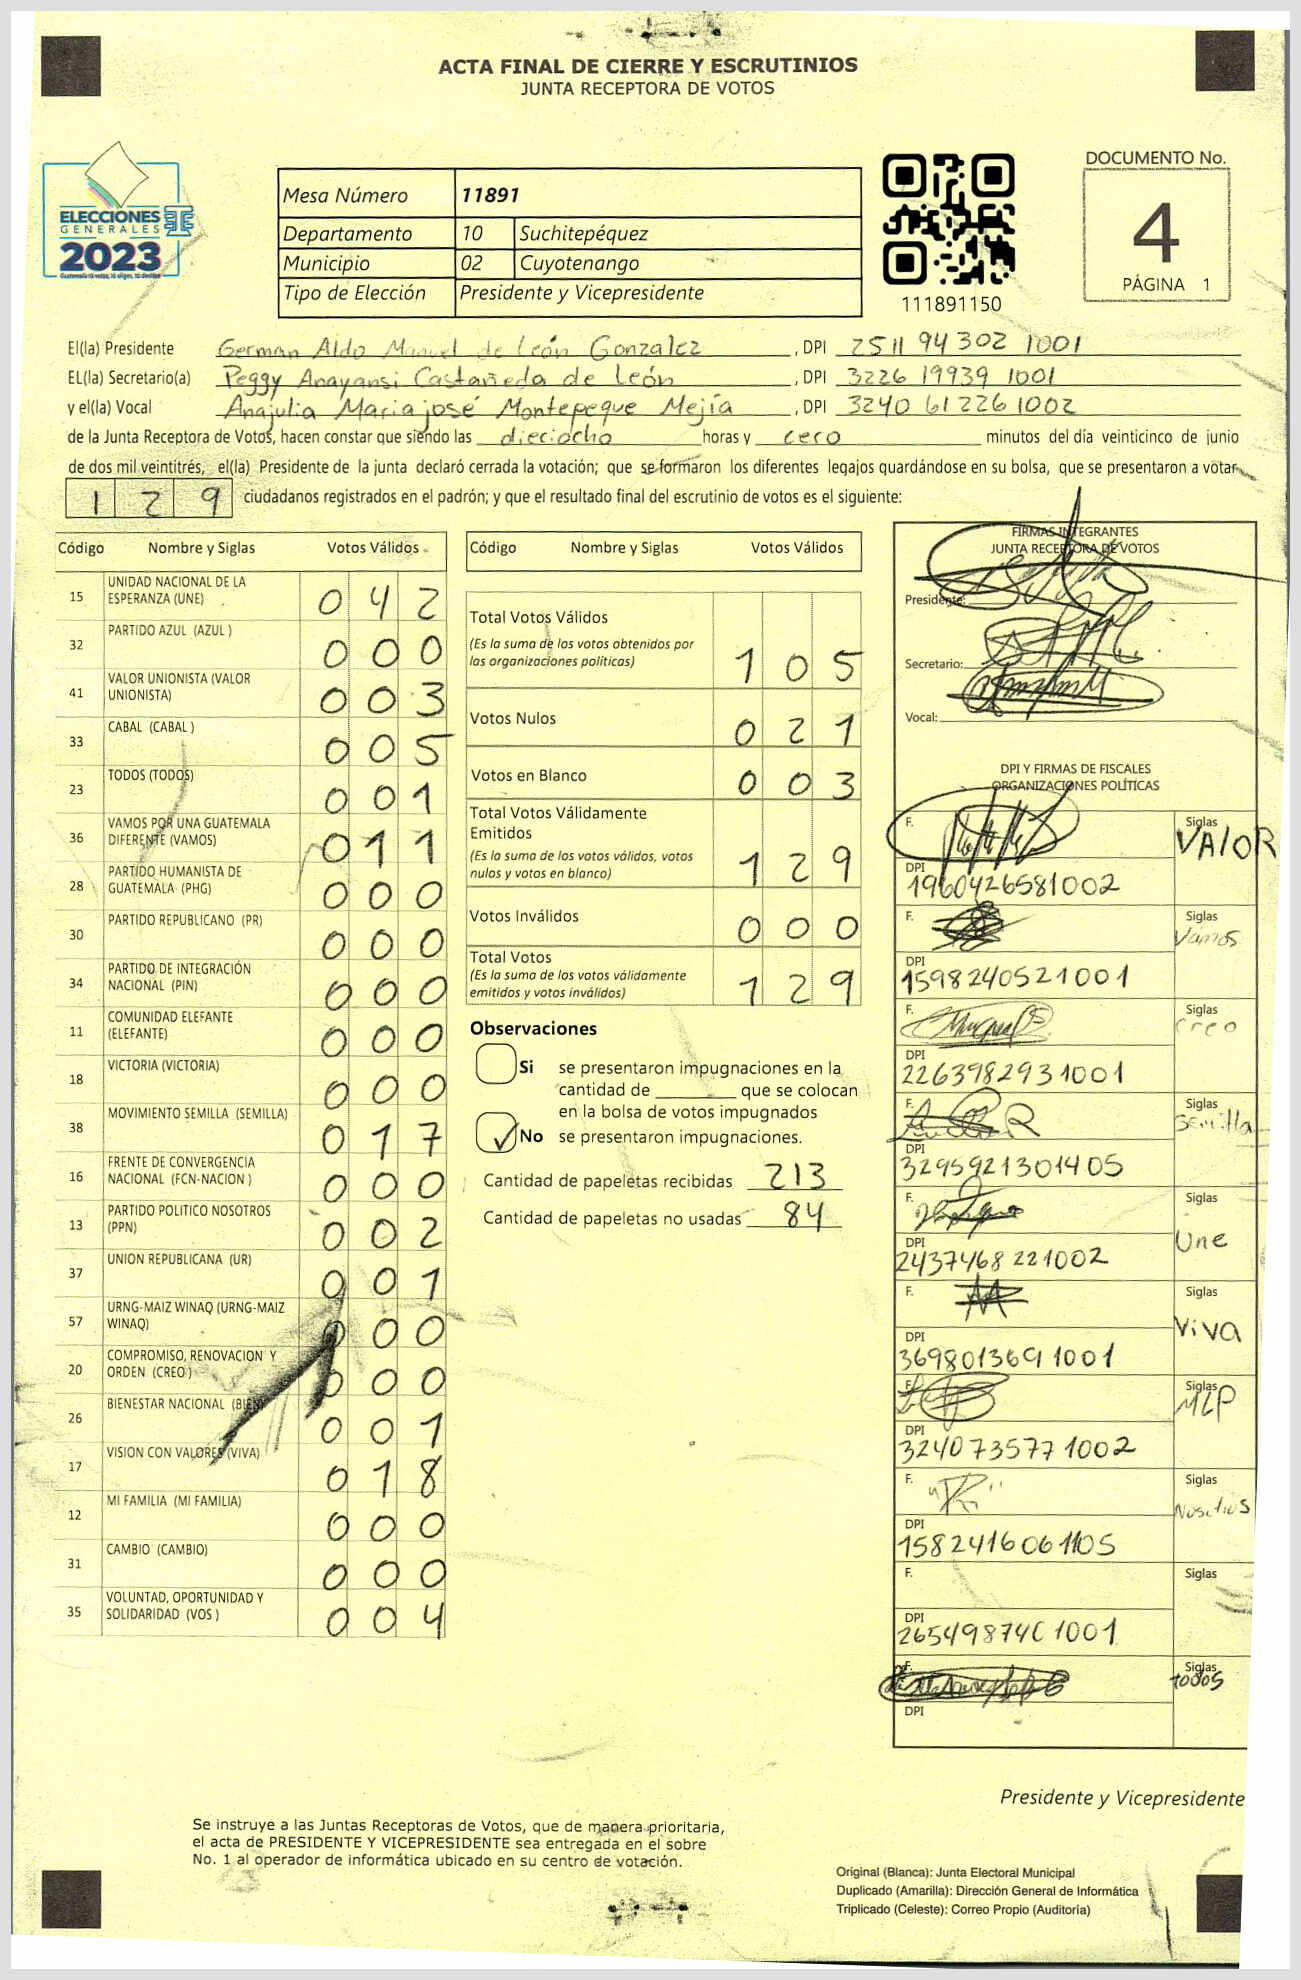 ACTA FINAL DE CIERRE Y ESCRUTINIOS
JUNTA RECEPTORA DE VOTOS
ELECCIONES
GENERALES
2023
Mesa Número 11891
Departamento 10 Suchitepéquez
Municipio 02 Cuyotenango
Tipo de Elección Presidente y Vicepresidente
111891150
DOCUMENTO No.
4
PÁGINA 1
El(la) Presidente German Aldo Manuel de León Gonzalez , DPI 2511 94302 1001
EL(la) Secretario(a) Peggy Anayansi Castañeda de León , DPI 3226 19939 1001
y el(la) Vocal Anajulia Mariajosé Montepeque Mejía , DPI 3240 61226 1002
de la Junta Receptora de Votos, hacen constar que siendo las dieciocho horas y cero minutos del día veinticinco de junio
de dos mil veintitrés, el(la) Presidente de la junta declaró cerrada la votación; que se formaron los diferentes legajos guardándose en su bolsa, que se presentaron a votar
129 ciudadanos registrados en el padrón; y que el resultado final del escrutinio de votos es el siguiente:
Código Nombre y Siglas Votos Válidos
15 UNIDAD NACIONAL DE LA ESPERANZA (UNE) 042
32 PARTIDO AZUL (AZUL ) 000
41 VALOR UNIONISTA (VALOR UNIONISTA) 003
33 CABAL (CABAL ) 005
23 TODOS (TODOS) 001
36 VAMOS POR UNA GUATEMALA DIFERENTE (VAMOS) 011
28 PARTIDO HUMANISTA DE GUATEMALA (PHG) 000
30 PARTIDO REPUBLICANO (PR) 000
34 PARTIDO DE INTEGRACIÓN NACIONAL (PIN) 000
11 COMUNIDAD ELEFANTE (ELEFANTE) 000
18 VICTORIA (VICTORIA) 000
38 MOVIMIENTO SEMILLA (SEMILLA) 017
16 FRENTE DE CONVERGENCIA NACIONAL (FCN-NACION ) 000
13 PARTIDO POLITICO NOSOTROS (PPN) 002
37 UNION REPUBLICANA (UR) 001
57 URNG-MAIZ WINAQ (URNG-MAIZ WINAQ) 000
20 COMPROMISO, RENOVACION Y ORDEN (CREO ) 000
26 BIENESTAR NACIONAL (BIEN) 001
17 VISION CON VALORES (VIVA) 018
12 MI FAMILIA (MI FAMILIA) 000
31 CAMBIO (CAMBIO) 000
35 VOLUNTAD, OPORTUNIDAD Y SOLIDARIDAD (VOS ) 004
Código Nombre y Siglas Votos Válidos
Total Votos Válidos
(Es la suma de los votos obtenidos por
las organizaciones políticas) 105
Votos Nulos 021
Votos en Blanco 003
Total Votos Válidamente
Emitidos
(Es la suma de los votos válidos, votos
nulos y votos en blanco) 129
Votos Inválidos 000
Total Votos
(Es la suma de los votos válidamente
emitidos y votos inválidos) 129
Observaciones
Si se presentaron impugnaciones en la
cantidad de ________ que se colocan
en la bolsa de votos impugnados
No se presentaron impugnaciones.
Cantidad de papeletas recibidas 213
Cantidad de papeletas no usadas 84
FIRMAS INTEGRANTES
JUNTA RECEPTORA DE VOTOS
Presidente:
Secretario:
Vocal:
DPI Y FIRMAS DE FISCALES
ORGANIZACIONES POLÍTICAS
F. Siglas VALOR
DPI 1960426581002
F. Siglas Vamos
DPI 1598240521001
F. Siglas Creo
DPI 2263982931001
F. Siglas Semilla
DPI 3295921301405
F. Siglas Une
DPI 2437468221002
F. Siglas Viva
DPI 3698013691001
F. Siglas MLP
DPI 3240735771002
F. Siglas Nosotros
DPI
F. Siglas
DPI
F. Siglas todos
DPI
Presidente y Vicepresidente
Se instruye a las Juntas Receptoras de Votos, que de manera prioritaria,
el acta de PRESIDENTE Y VICEPRESIDENTE sea entregada en el sobre
No. 1 al operador de informática ubicado en su centro de votación.
Original (Blanca): Junta Electoral Municipal
Duplicado (Amarilla): Dirección General de Informática
Triplicado (Celeste): Correo Propio (Auditoría)